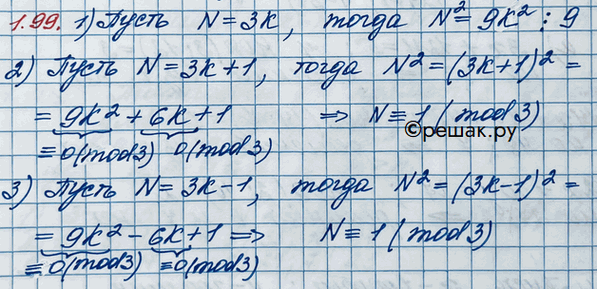 1.99. 1) Пусть N = 3k, тогда N² = 9k² ⋮ 9
2) Пусть N = 3k+1, тогда N² = (3k+1)² =
= 9k² + 6k + 1 ⇒ N ≡ 1 (mod 3)
©решак.ру
≡ 0 (mod 3) 0 (mod 3)
3) Пусть N = 3k-1, тогда N² = (3k-1)² =
= 9k² - 6k + 1 ⇒ N ≡ 1 (mod 3)
≡ 0 (mod 3) ≡ 0 (mod 3)